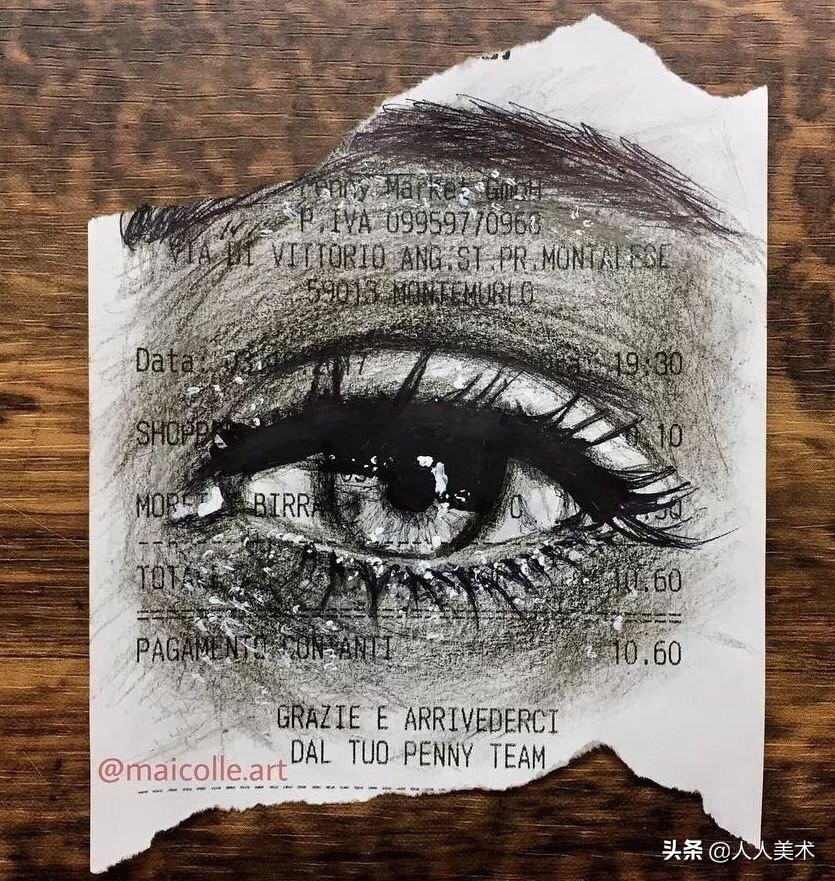 Penny Market GmbH
P.IVA 09959770960
VIA DI VITTORIO ANG.ST.PR.MONTALESE
59013 MONTEMURLO
Data: 19:30
.10
BIRRA 0
10.60
PAGAMENTO CONTANTI 10.60
GRAZIE E ARRIVEDERCI
DAL TUO PENNY TEAM
@maicolle.art
头条 @人人美术